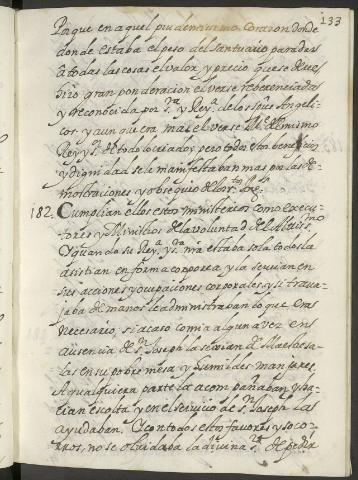 133
Porque en aquel prudentissimo corazon donde
donde estaba el peso del santuario para dar
a todas las cosas el valor y precio que se deve
hizo gran ponderacion el verse reberenciada
y reconocida por sª y Reyª de los spus Angeli
cos y aun que era mas el verse Mᵉ del mismo
Rey y sʳ de todo lo criado pero todos estos benefficios
y dignidad se le manifestaban mas por las de
mostraciones y obsequio de los stos Angs
182. Cumplian ellos estos ministerios como execu
tores y Ministros de la voluntad del Altissmo
Y quando su Reyª y sª nrª estaba sola todos la
asistian en forma corporea y la servian en
sus acciones y ocupaciones corporales y si traua
jaba de manos le administraban lo que era
necesario, si acaso comia alguna vez en
ausencia de Sⁿ Joseph la servian de Maestresa
las en su pobre mesa y humildes manjares,
A qualquiera parte la acompañaban y ha
cian escolta y en el servicio de Sⁿ Joseph la
ayudaban. Y con todos estos favores y soco
rros, no se olvidaba la divina sª de pedir